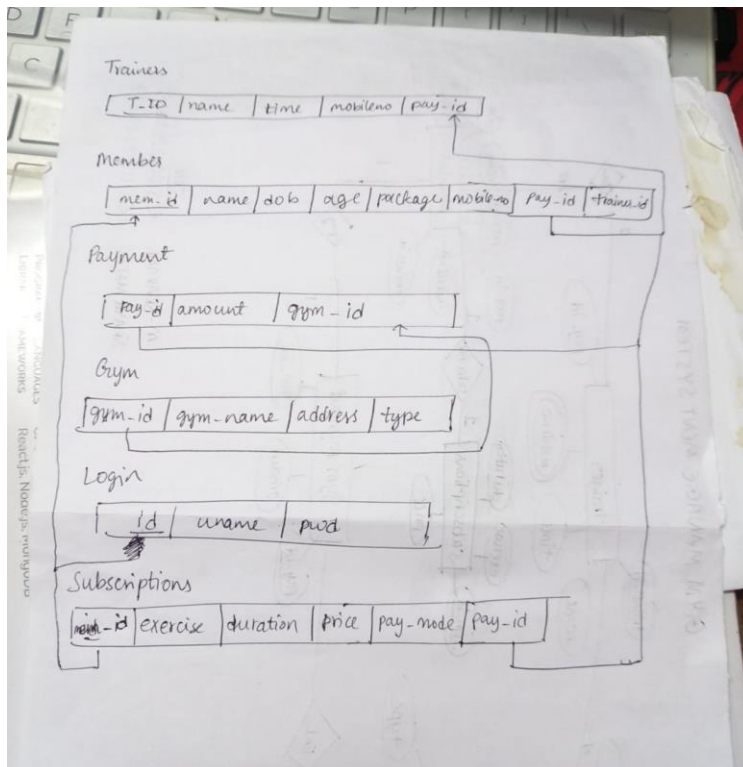 Trainers
T_ID name time mobileno pay-id
Member
mem-id name dob age package mobileno pay-id trainer-id
Payment
Pay-id amount gym-id
Gym
gym-id gym-name address type
Login
id uname pwd
Subscriptions
mem-id exercise duration price pay-mode pay-id